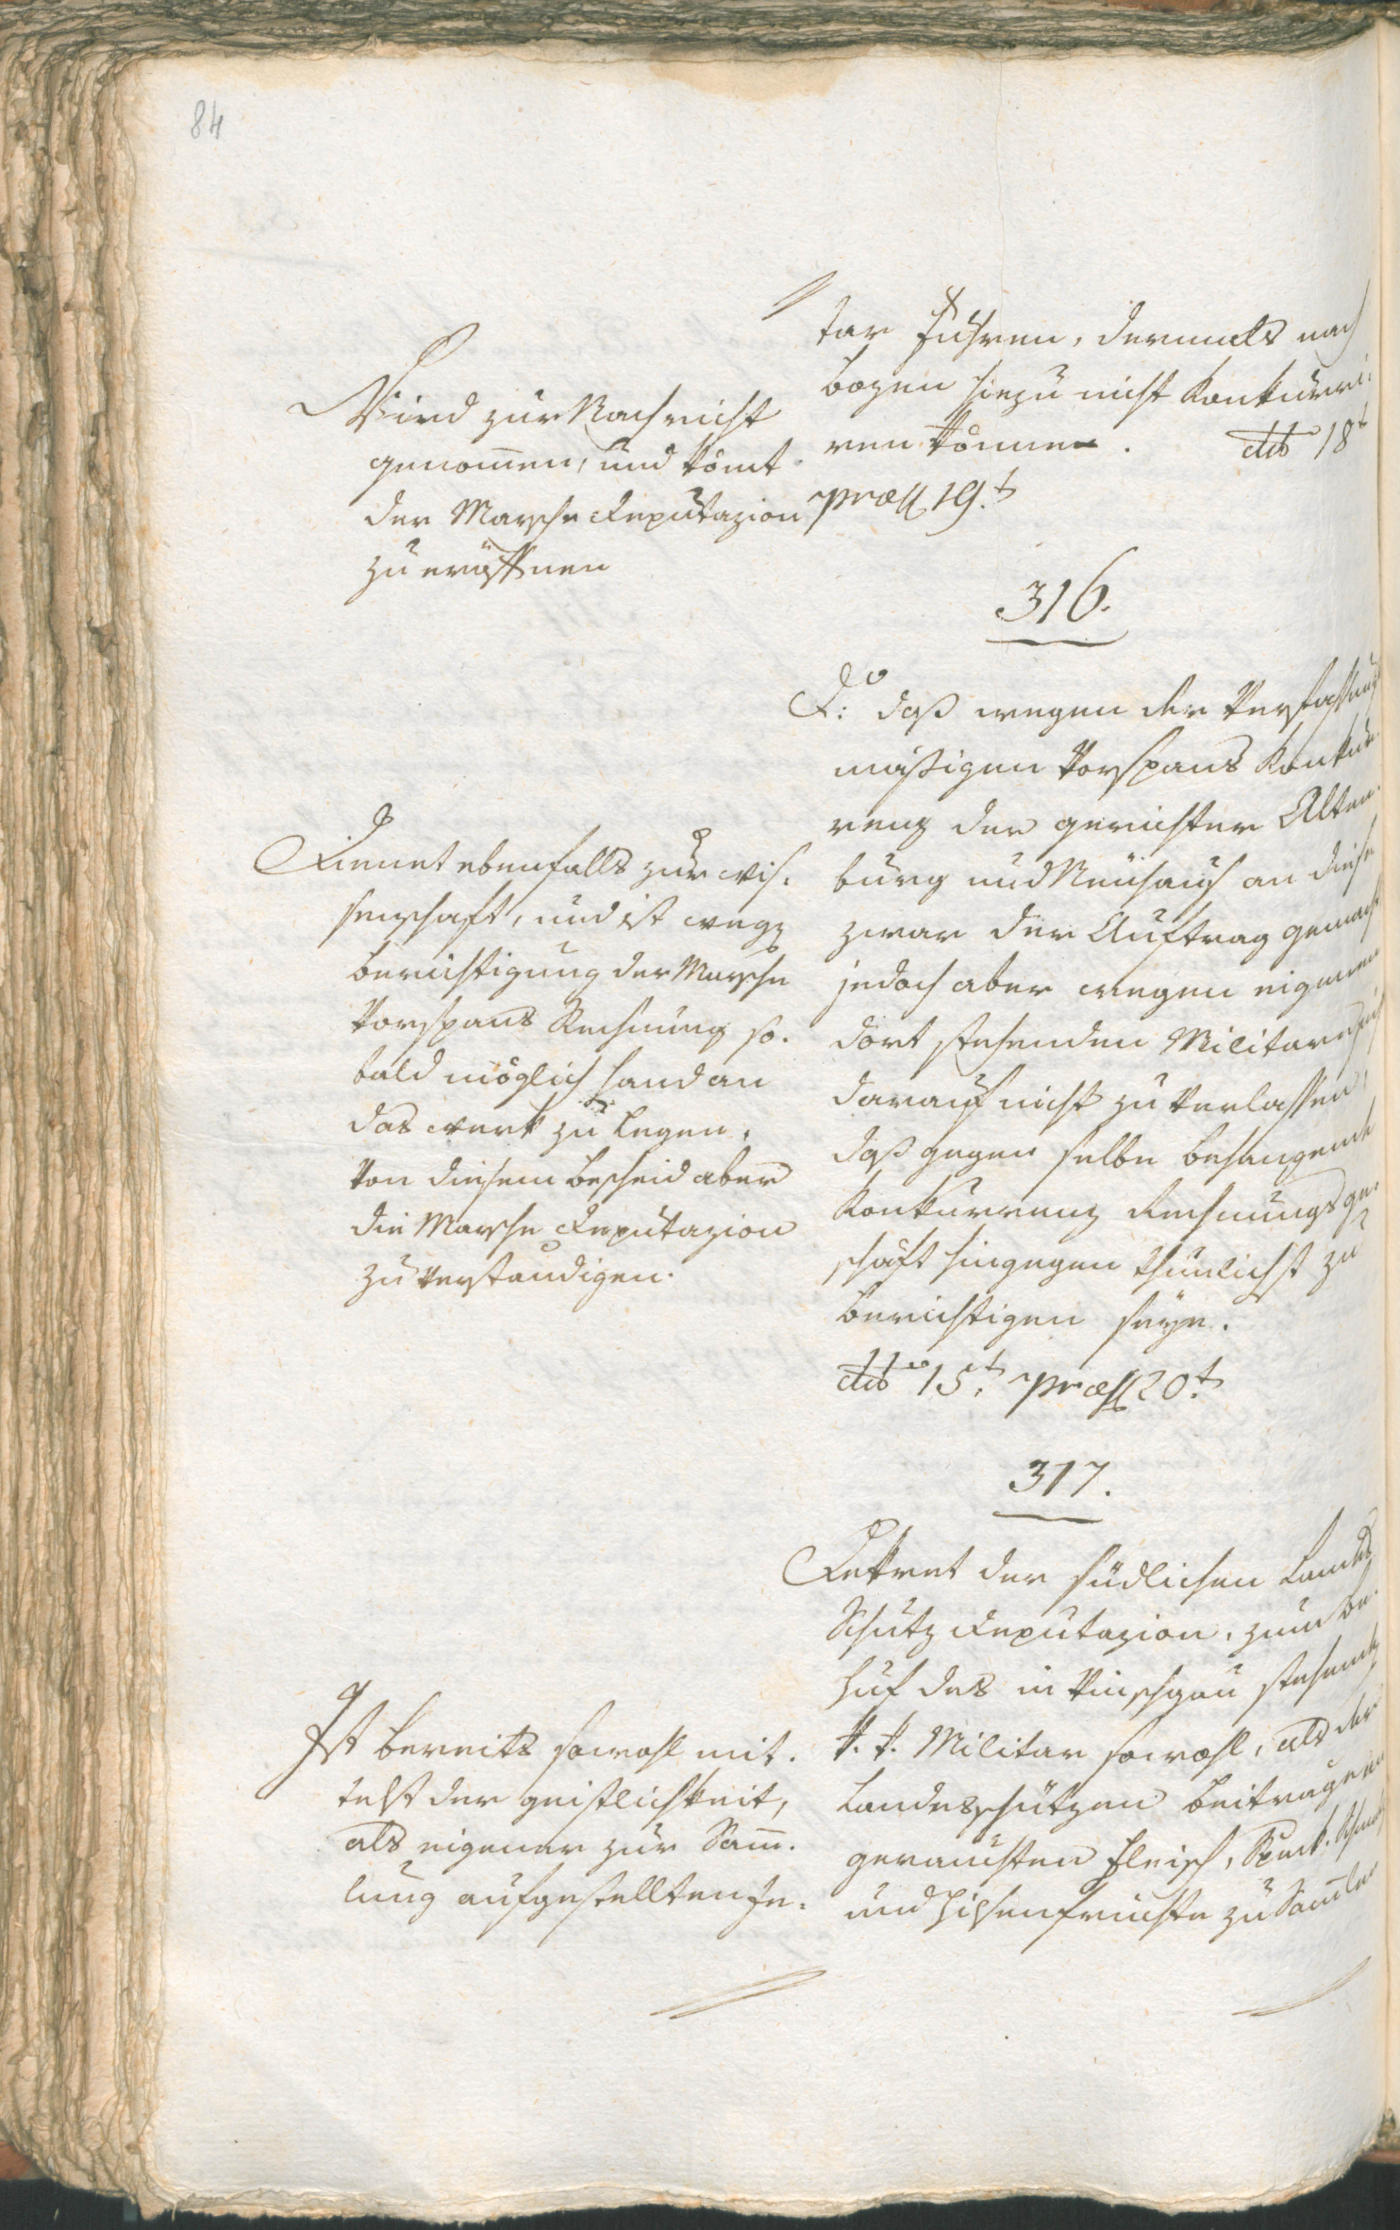 84
tar Fuhren, dermals nach
bozen hiezu nicht konkurri-
ren könne. ddo 18t
præs 19.t
Wird zur Nachricht
genommen, und kömt
der Marsche Deputazion
zu eröffnen
316.
do: daß wegen der verfassung
mäßigen vorspans konkur-
renz der gerichter Alten-
burg und Neuhaus an diese
zwar der Auftrag gemacht
jedoch aber wegen eigenen
dort stehenden Militar sich
darauf nicht zu verlassen,
daß gegen selbe behangende
konkurrenz Rechnungs ge-
schäft hingegen thunlichst zu
berichtigen seye.
ddo 15.t præs 20.t
Dienet ebenfalls zur wis-
senschaft, und ist wegen
berichtigung der Marsche
vorspans Rechnung so-
bald möglich hand an
das werk zu legen,
von diesem bescheid aber
die Marsche Deputazion
zu verständigen.
317.
Dekret der südlichen Landes
Schutz Deputazion, zum be-
huf des in vinschgau stehenden
k. k. Militar sowohl, als der
Landesschützen beitragenen
geräuchten fleisch, Speck, Schmalz
und Hilsenfrüchte zu Samlen
Ist bereits sowohl mit-
telst der geistlichkeit,
als eigener zur Sam-
lung aufgestellten Je-